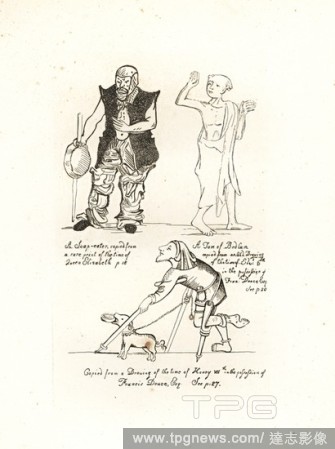 A Soap-eater, copied from
a rare print of the time of
Queen Elizabeth p 18
A Tom of Bedlam
copied from an old Drawing
in the possession of
Fran. Douce Esq
See p 28
Copied from a Drawing of the time of Henry VII in the possession of
Francis Douce, Esq See p. 27.
TPG
www.tpgnews.com/達志影像